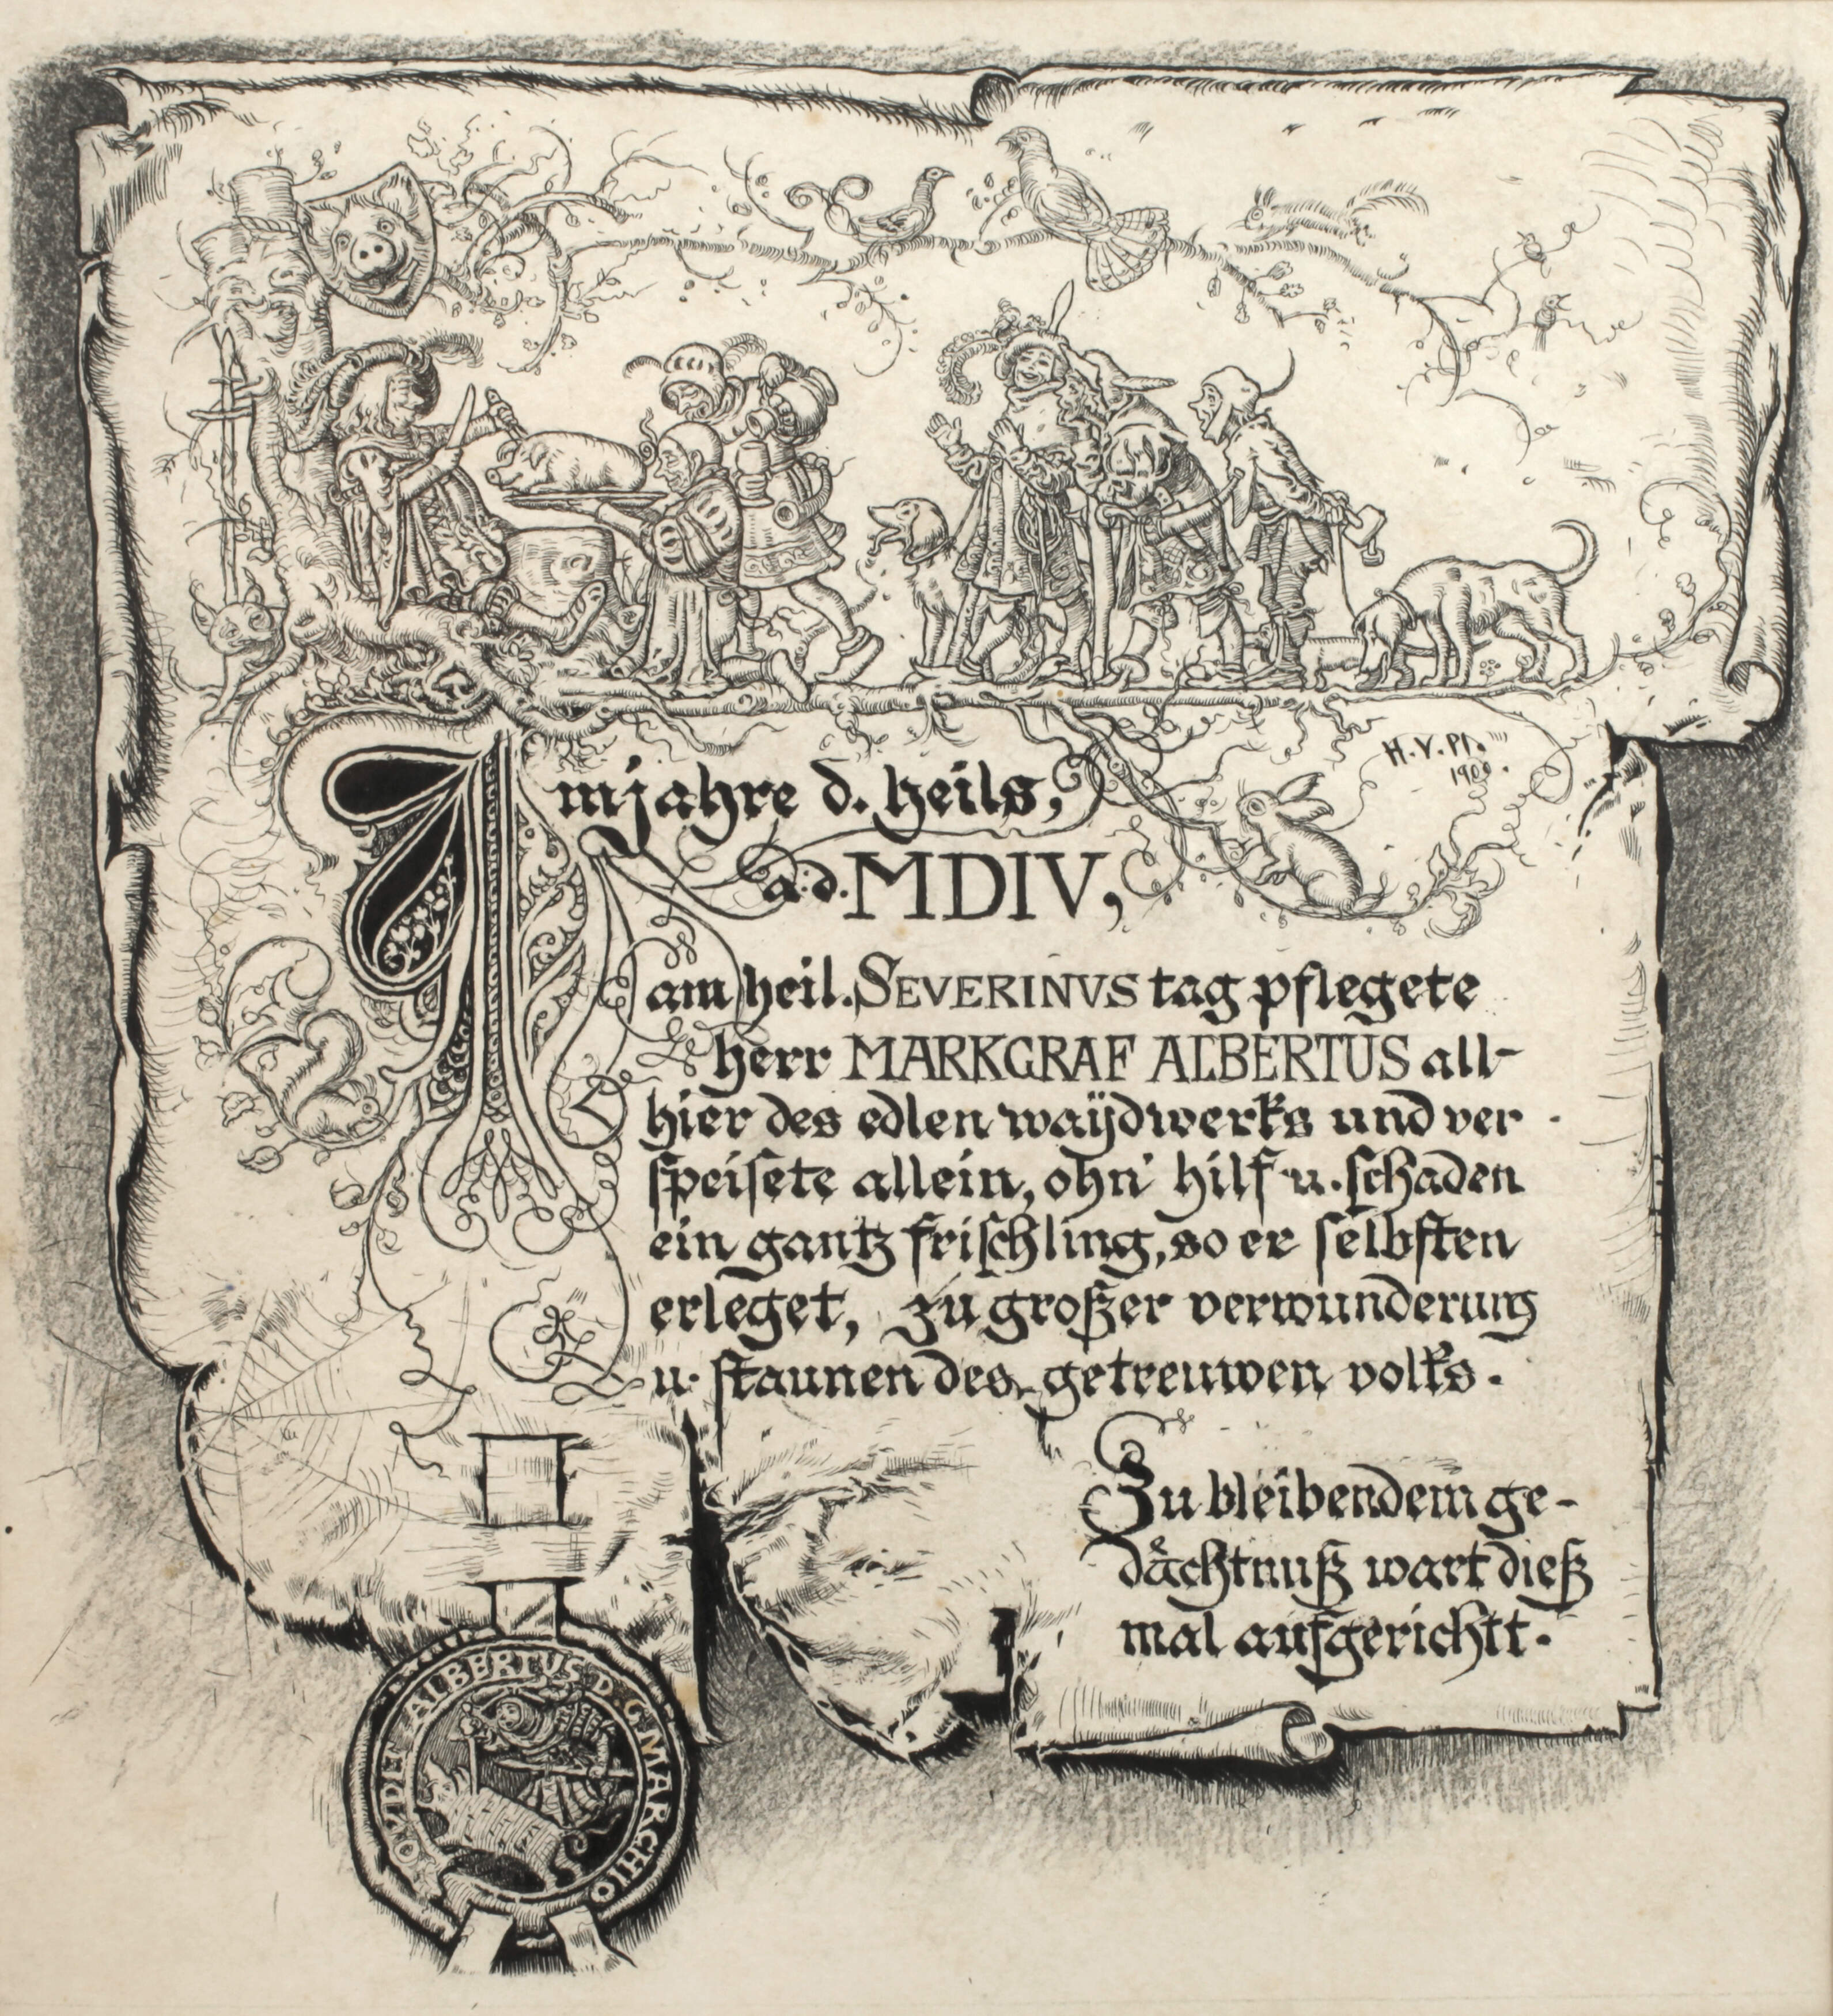 H.V.Pf.
1900.
Im jahre d. heils,
a.d. MDIV,
am heil. SEVERINVS tag pflegete
herr MARKGRAF ALBERTUS all-
hier des edlen waÿdwerks und ver -
speisete allein, ohn' hilf u. schaden
ein gantz frischling, so er selbsten
erleget, zu großer verwunderung
u. staunen des getreuwen volks.
Zu bleibendem ge-
dåchtnuß wart dieß
mal aufgerichtt.
ALBERTUS D. G. MARCHIO